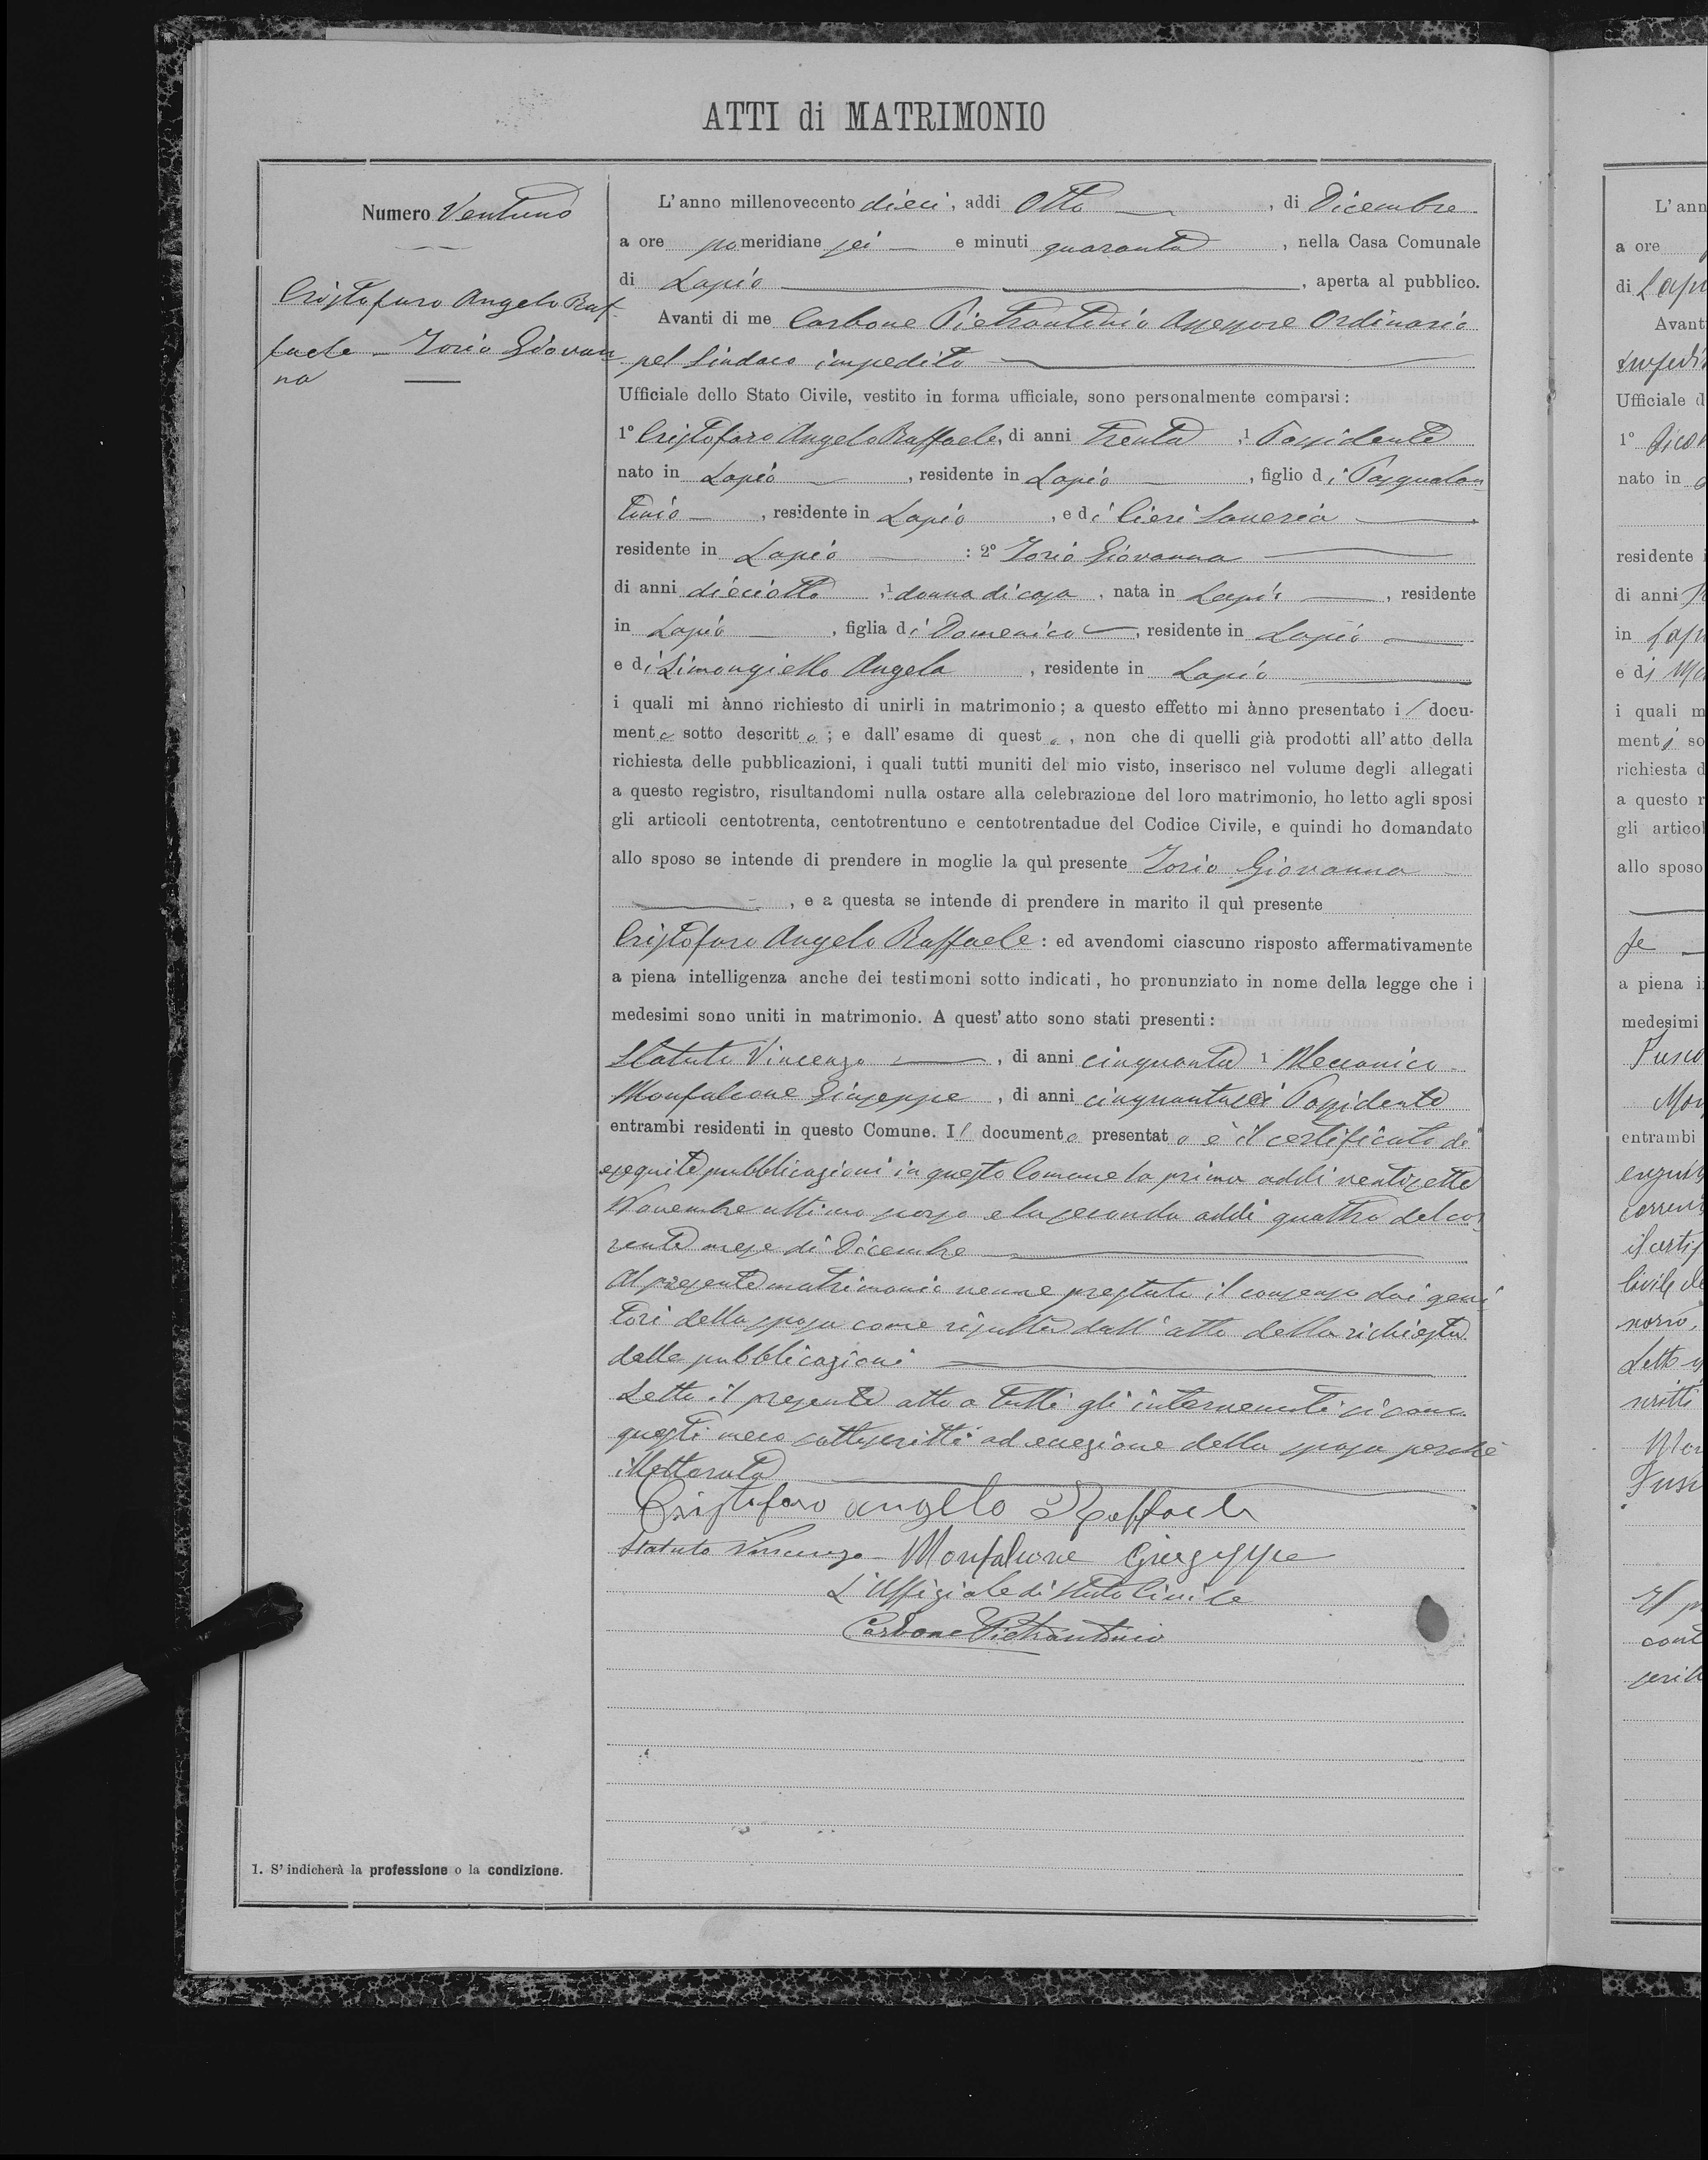 ATTI di MATRIMONIO
Numero Ventuno
Cristofaro Angelo Raf
faele - Iorio Giovan
na
L'anno millenovecento dieci, addi Otto, di Dicembre
a ore pomeridiane sei e minuti quaranta, nella Casa Comunale
di Lapio, aperta al pubblico.
Avanti di me Carbone Pietrantonio Assessore Ordinario
pel Sindaco impedito
Ufficiale dello Stato Civile, vestito in forma ufficiale, sono personalmente comparsi:
1° Cristofaro Angelo Raffaele, di anni trenta, 1 Possidente
nato in Lapio, residente in Lapio, figlio di Pasqualan
tonio, residente in Lapio, e di Cieri Saveria
residente in Lapio : 2° Iorio Giovanna
di anni dieciotto, 1 donna di casa, nata in Lapio, residente
in Lapio, figlia di Domenico, residente in Lapio
e di Simongiello Angela, residente in Lapio
i quali mi ànno richiesto di unirli in matrimonio; a questo effetto mi ànno presentato il docu-
mento sotto descritto; e dall'esame di questo, non che di quelli già prodotti all'atto della
richiesta delle pubblicazioni, i quali tutti muniti del mio visto, inserisco nel volume degli allegati
a questo registro, risultandomi nulla ostare alla celebrazione del loro matrimonio, ho letto agli sposi
gli articoli centotrenta, centotrentuno e centotrentadue del Codice Civile, e quindi ho domandato
allo sposo se intende di prendere in moglie la quì presente Iorio Giovanna
, e a questa se intende di prendere in marito il quì presente
Cristofaro Angelo Raffaele: ed avendomi ciascuno risposto affermativamente
a piena intelligenza anche dei testimoni sotto indicati, ho pronunziato in nome della legge che i
medesimi sono uniti in matrimonio. A quest'atto sono stati presenti:
Statuto Vincenzo, di anni cinquanta 1 Meccanico
Monfalcone Giuseppe, di anni cinquantasei Possidente
entrambi residenti in questo Comune. Il documento presentato è il certificato di
eseguite pubblicazioni in questo Comune la prima addi ventisette
Novembre ultimo scorso e la seconda addi quattro del cor
rente mese di Dicembre
Al presente matrimonio venne prestato il consenso dai geni
tori della sposa come risulta dall'atto della richiesta
delle pubblicazioni
Letto il presente atto a tutti gli intervenuti si sono
questi meco sottoscritti ad eccezione della sposa perchè
illetterata
Cristofaro angelo Raffaele
Statuto Vincenzo - Monfalcone Giuseppe
L'Uffiziale di Stato Civile
Carbone Pietrantonio
1. S'indicherà la professione o la condizione.
L'ann
a ore
di Lapi
Avant
impedi
Ufficiale d
1°
nato in
residente
di anni
in Lap
e di
i quali m
menti so
richiesta d
a questo r
gli articol
allo sposo
a piena i
medesimi
Fusco
Mon
entrambi